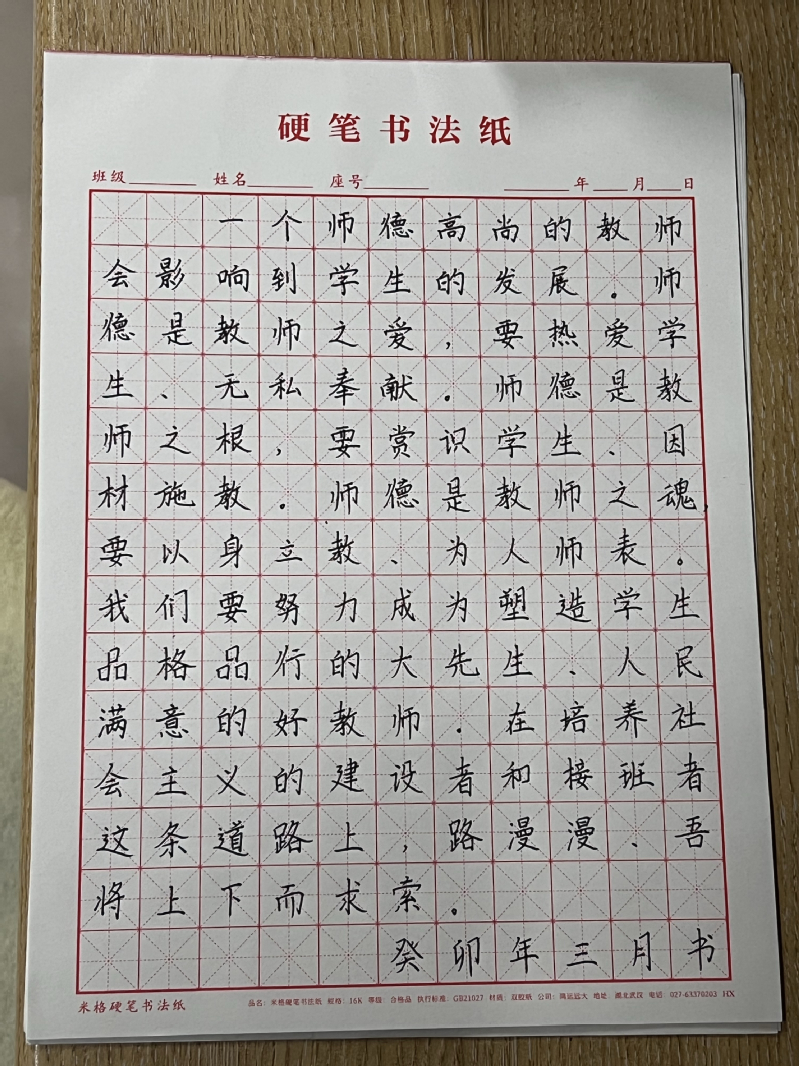 硬笔书法纸
班级 姓名 座号 年 月 日
一个师德高尚的教师
会影响到学生的发展.师
德是教师之爱,要热爱学
生、无私奉献.师德是教
师之根,要赏识学生、因
材施教.师德是教师之魂,
要以身立教、为人师表。
我们要努力成为塑造学生
品格品行的大先生、人民
满意的好教师.在培养社
会主义的建设者和接班者
这条道路上,路漫漫、吾
将上下而求索。
癸卯年三月书
米格硬笔书法纸 品名:米格硬笔书法纸 规格:16K 等级:合格品 执行标准:GB21027 材质:双胶纸 公司:鸿运远大 地址:湖北武汉 电话:027-63370203 HX